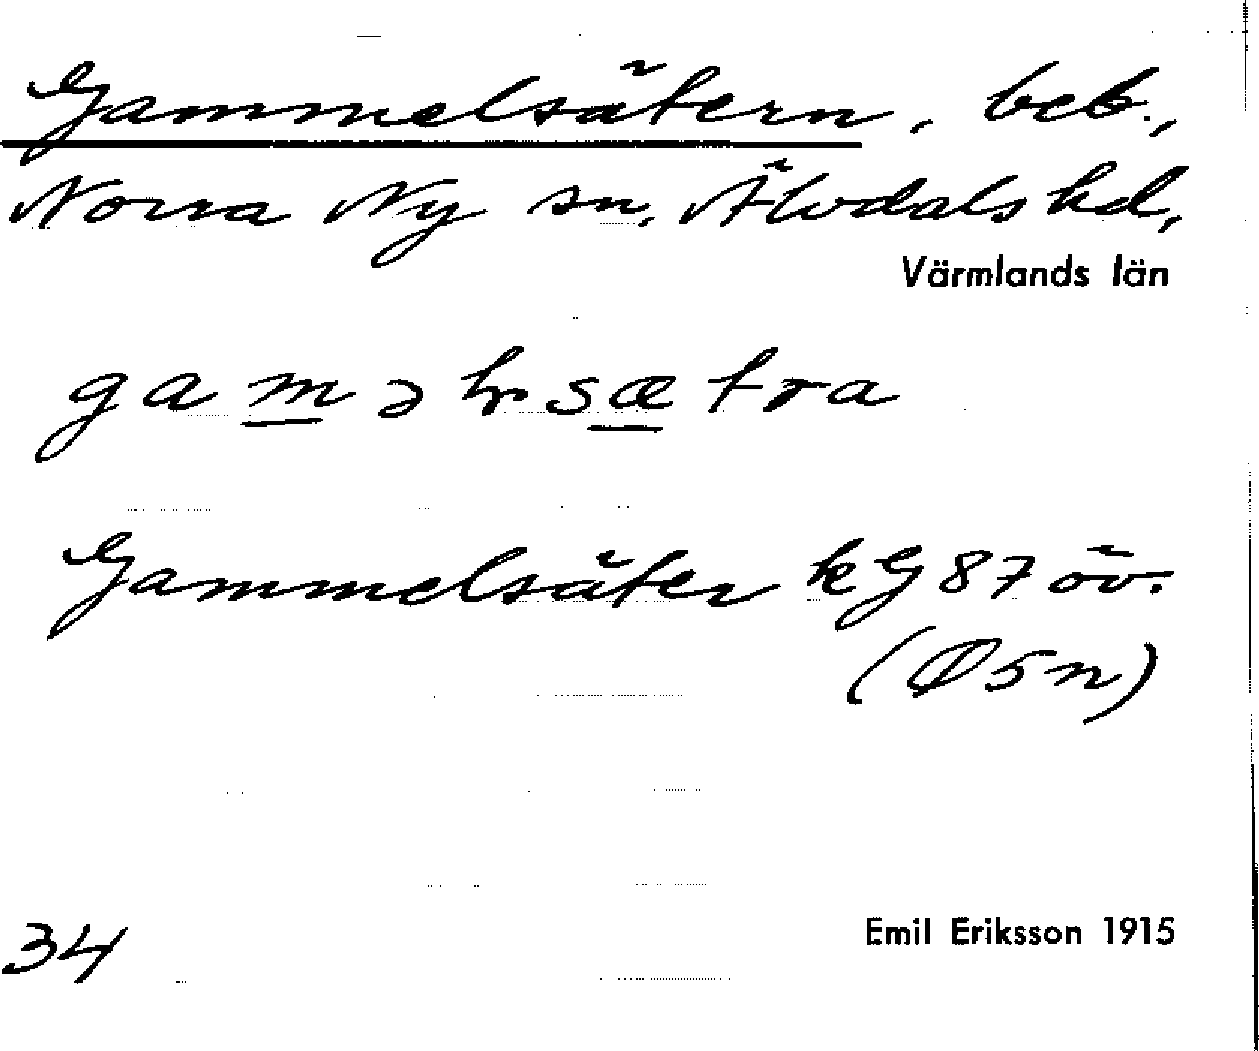 Gammelsätern, beb.,
Norra Ny sn, Älvdals hd,
Värmlands län
gaməlsætra
Gammelsäter kG87 öv.
(Ø5n)
34
Emil Eriksson 1915